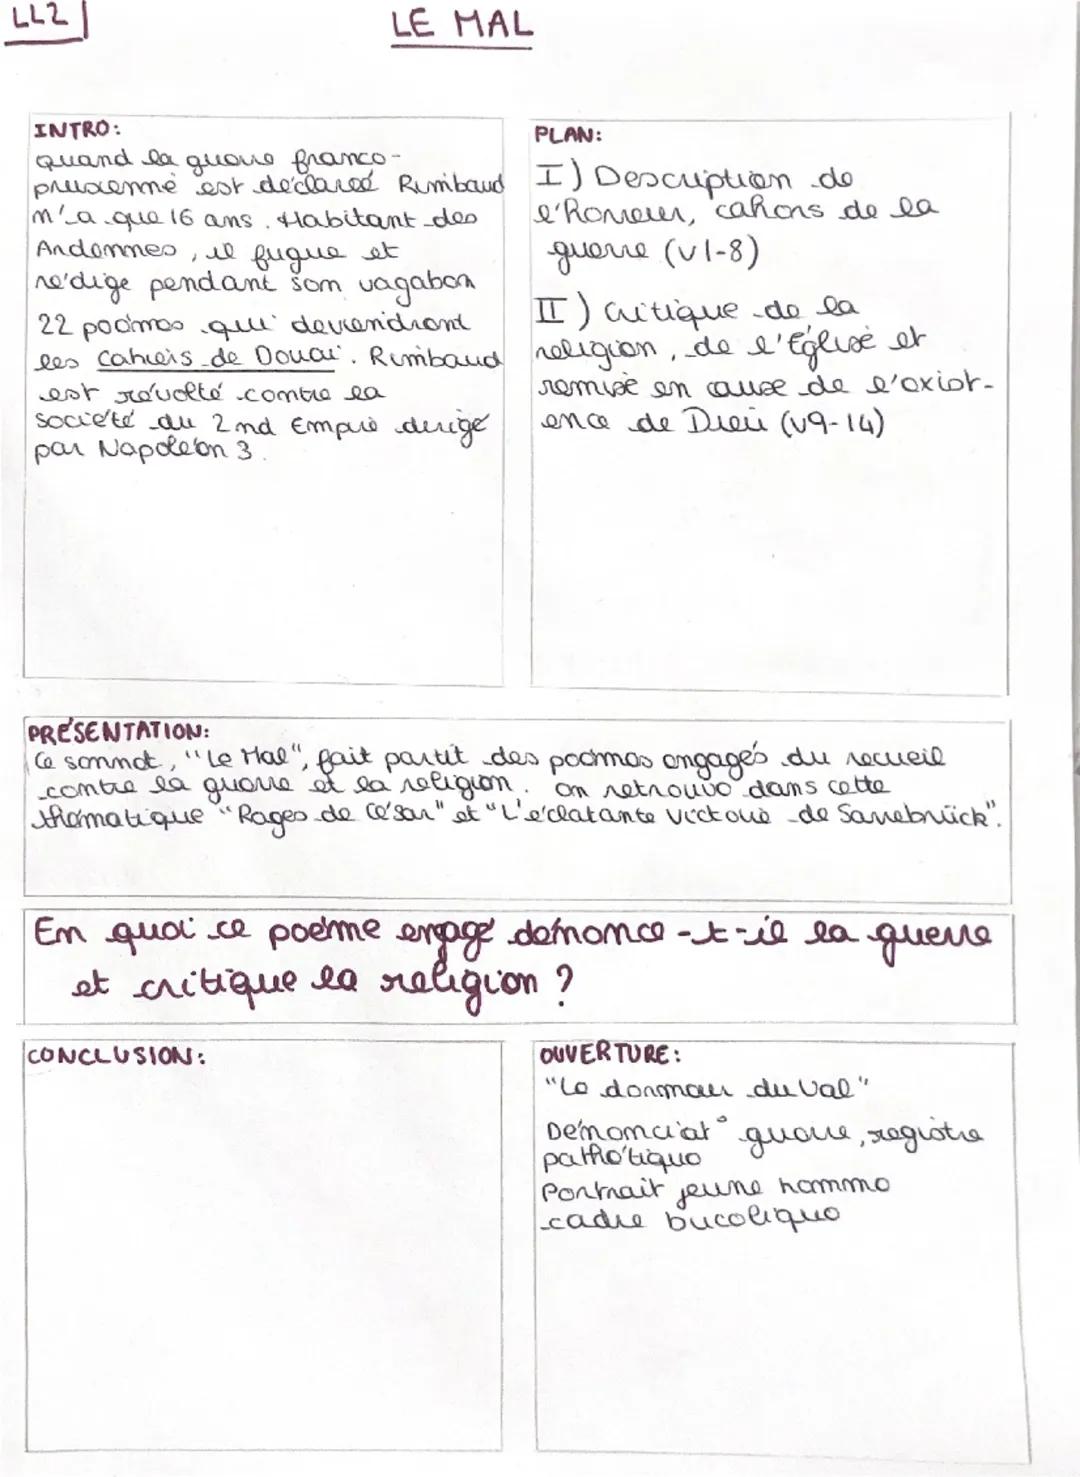 LL2
LE MAL
INTRO:
Quand la guerre franco-
prussienne est déclarée Rimbaud
n'a que 16 ans. Habitant des
Ardennes, il fugue et
rédige pendant son vagabon
22 poèmes qui deviendront
les cahiers de Douai. Rimbaud
est révolté contre la
société du 2nd Empire dirigé
par Napoléon 3.
PLAN:
I) Description de
l'Horreur, cahons de la
guerre (v1-8)
II) Critique de la
religion, de l'Église et
remise en cause de l'exist-
ence de Dieu (v9-14)
PRÉSENTATION:
Ce sonnet, "Le Mal", fait partit des poèmes engagés du recueil
contre la guerre et la religion. On retrouve dans cette
thématique "Rages de César" et "L'éclatante victoire de Sarrebrück".
En quoi ce poème engagé dénonce-t-il la guerre
et critique la religion ?
CONCLUSION:
OUVERTURE:
"Le dormeur du Val"
Dénonciat° guerre, registre
pathétique
Portrait jeune homme
cadre bucolique